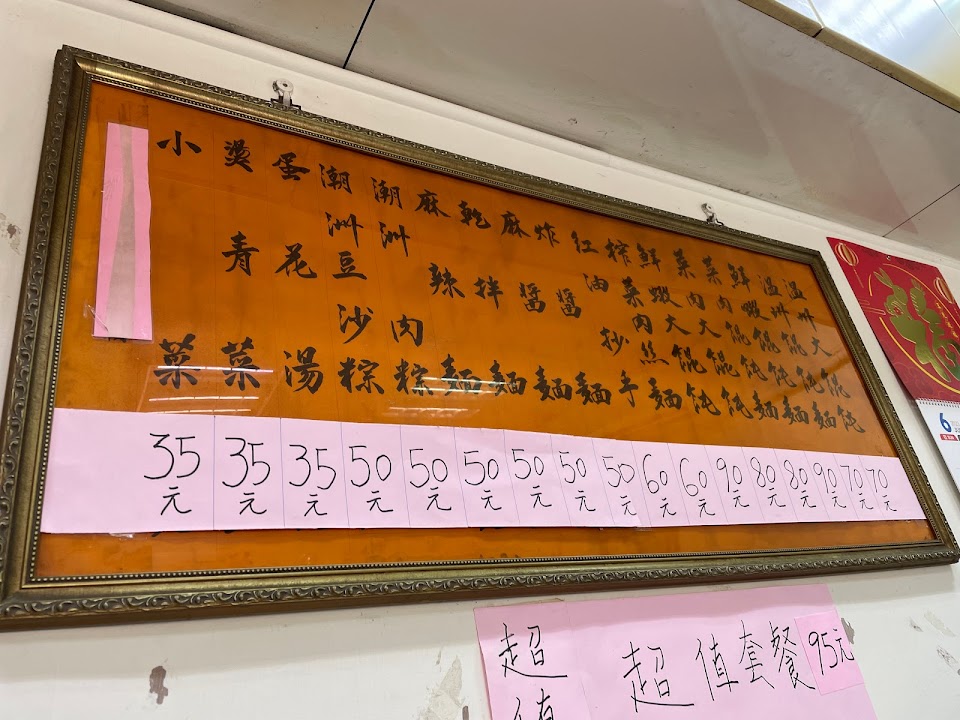 溫州大餛飩 70元
溫州餛飩麵 70元
鮮蝦餛飩麵 90元
菜肉餛飩麵 80元
菜肉大餛飩 80元
鮮蝦大餛飩 90元
榨菜肉絲麵 60元
紅油抄手 60元
炸醬麵 50元
麻醬麵 50元
乾拌麵 50元
麻辣麵 50元
潮洲肉粽 50元
潮洲豆沙粽 50元
蛋花湯 35元
燙青菜 35元
小菜 35元
福
6
超值
超值套餐 95元